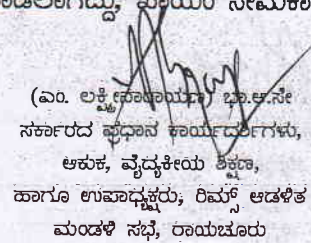 ಖಾಯಂ ನೇಮಕಾ
(ಎಂ. ಲಕ್ಷ್ಮೀನಾರಾಯಣ) ಭಾ.ಆ.ಸೇ
ಸರ್ಕಾರದ ಪ್ರಧಾನ ಕಾರ್ಯದರ್ಶಿಗಳು,
ಆಕುಕ, ವೈದ್ಯಕೀಯ ಶಿಕ್ಷಣ,
ಹಾಗೂ ಉಪಾಧ್ಯಕ್ಷರು, ರಿಮ್ಸ್ ಆಡಳಿತ
ಮಂಡಳಿ ಸಭೆ, ರಾಯಚೂರು